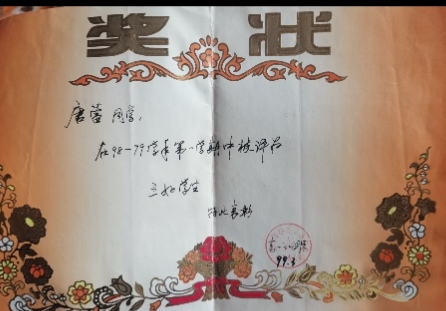 奖状
唐蕾同学：
在98-99学年第一学期中被评为
三好学生
特此表彰
99.3